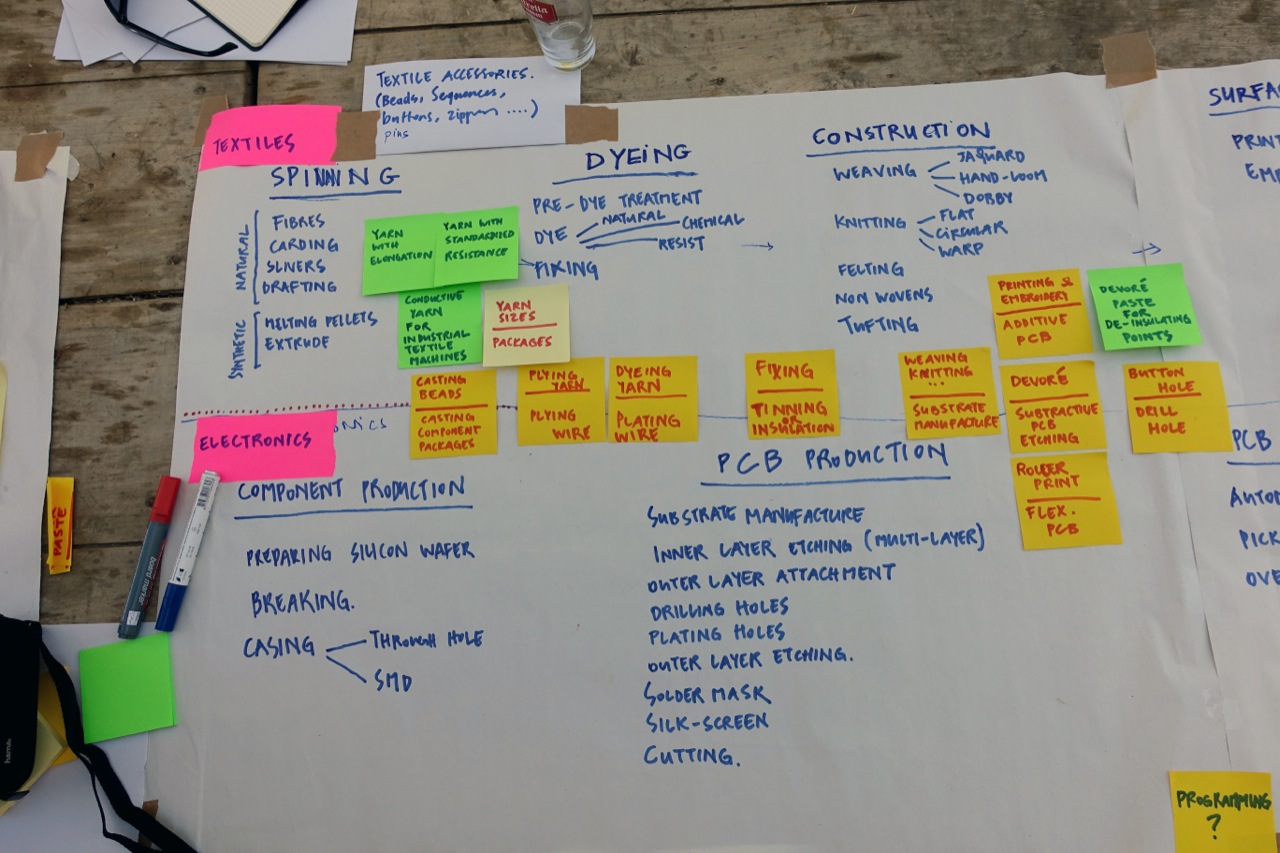 TEXTILE ACCESSORIES.
(Beads, Sequences,
buttons, zippers ....)
pins
TEXTILES
SPINNING
NATURAL
FIBRES
CARDING
SLIVERS
DRAFTING
SYNTHETIC
MELTING PELLETS
EXTRUDE
YARN
WITH
ELONGATION
YARN WITH
STANDARDIZED
RESISTANCE
CONDUCTIVE
YARN
FOR
INDUSTRIAL
TEXTILE
MACHINES
YARN
SIZES
PACKAGES
DYEING
PRE-DYE TREATMENT
DYE
NATURAL
CHEMICAL
RESIST
FIXING
CONSTRUCTION
WEAVING
JAQUARD
HAND-LOOM
DOBBY
KNITTING
FLAT
CIRCULAR
WARP
FELTING
NON WOVENS
TUFTING
PRINTING &
EMBROIDERY
ADDITIVE
PCB
DEVORÉ
PASTE
FOR
DE-INSULATING
POINTS
CASTING
BEADS
CASTING
COMPONENT
PACKAGES
PLYING
YARN
PLYING
WIRE
DYEING
YARN
PLATING
WIRE
FIXING
TINNING
OR
INSULATION
WEAVING
KNITTING
...
SUBSTRATE
MANUFACTURE
DEVORÉ
SUBTRACTIVE
PCB
ETCHING
BUTTON
HOLE
DRILL
HOLE
ROLLER
PRINT
FLEX.
PCB
ELECTRONICS
COMPONENT PRODUCTION
PREPARING SILICON WAFER
BREAKING.
CASING
THROUGH HOLE
SMD
PCB PRODUCTION
SUBSTRATE MANUFACTURE
INNER LAYER ETCHING (MULTI-LAYER)
OUTER LAYER ATTACHMENT
DRILLING HOLES
PLATING HOLES
OUTER LAYER ETCHING.
SOLDER MASK
SILK-SCREEN
CUTTING.
PCB
PICK
PASTE
board marker
hama
PROGRAMMING
?